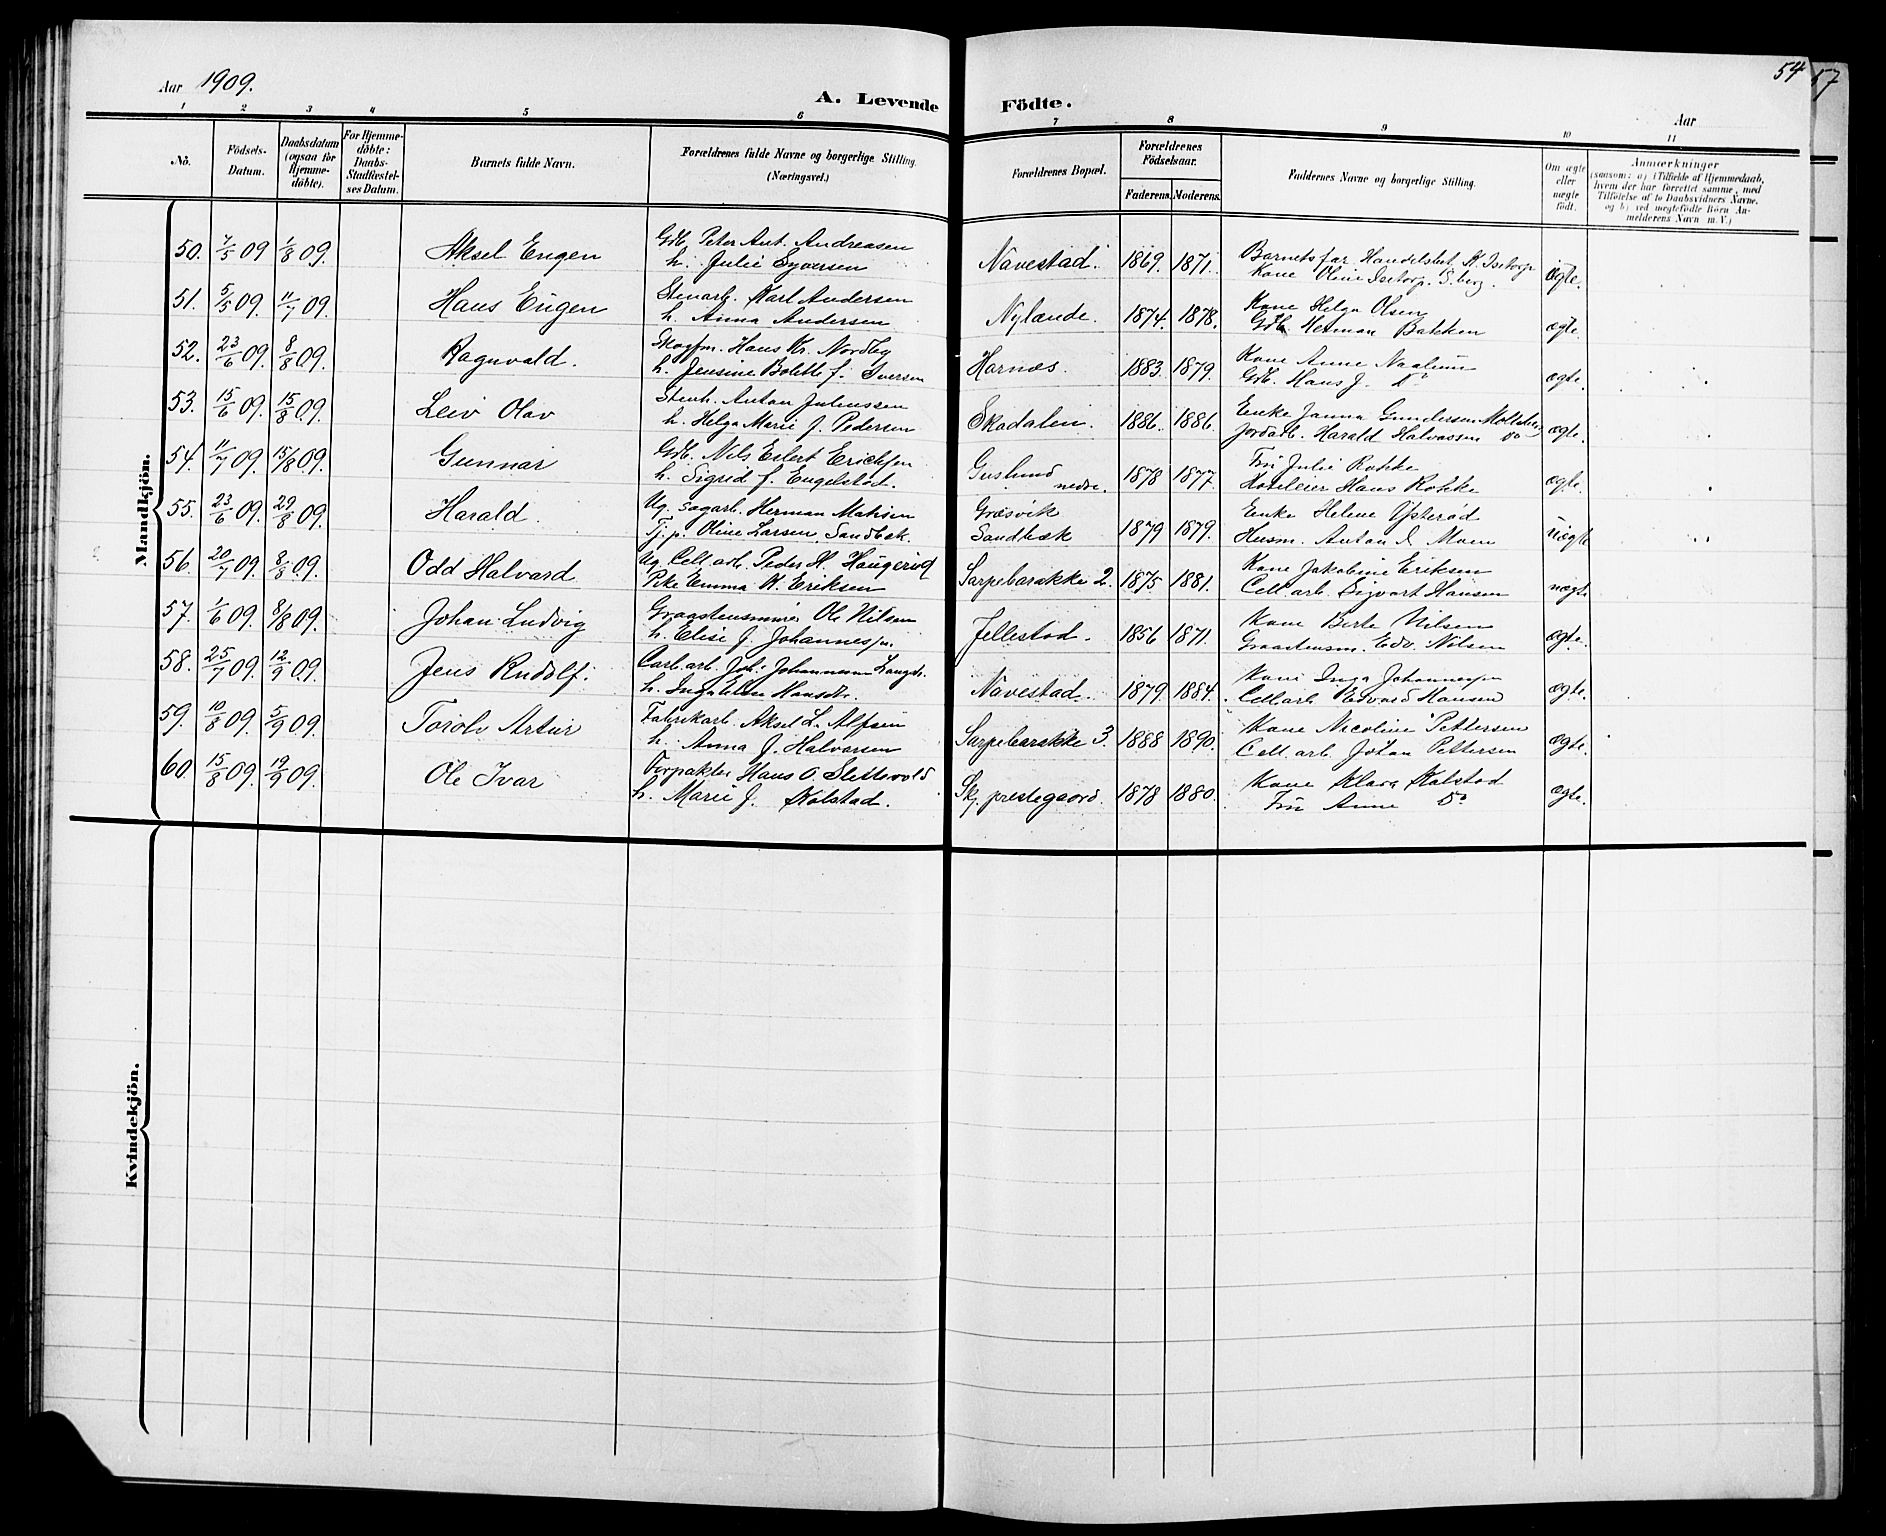 Aar 1909.
A. Levende Födte.
Aar
54
57
1 2 3 4 5 6 7 8 9 10 11
No.
Födsels-Datum.
Daabsdatum (ogsaa för Hjemme-döbte).
For Hjemme-döbte: Daabs-Stadfæstel-ses Datum.
Barnets fulde Navn.
Forældrenes fulde Navne og borgerlige Stilling. (Næringsvei.)
Forældrenes Bopæl.
Forældrenes Födselsaar.
Faderens. Moderens.
Faddernes Navne og borgerlige Stilling.
Om ægte eller uægte födt.
Anmærkninger
(saasom: a) i Tilfælde af Hjemmedaab, hvem der har forrettet samme, med Tilföielse af to Daabsvidners Navne, og b) ved uægtefödte Börn An-melderens Navn m. V.)
Mandkjön.
50. 7/5 09 1/8 09. Aksel Eugen Gdb. Peter Ant. Andreasen Navestad. 1869. 1871. Barnets far Handelsbet. K. Isetorp ægte.
h. Julie Syversen Kone Oline Isetorp. S.borg.
51. 5/5 09. 11/7 09. Hans Eugen Stenarb. Karl Andersen Nylænde. 1874. 1878. Kone Helga Olsen ægte.
h. Anna Andersen Gdb. Herman Bakken
52. 23/6 09. 8/8 09. Ragnvald. Skogfm. Hans Kr. Nordby Harnæs. 1883. 1879. Kone Anne Naalum ægte.
h. Jensine Bolette f. Iversen Gdb. Hans J. Do
53. 15/6 09. 15/8 09. Leiv Olav Stenh. Anton Juliussen Skadalen. 1886. 1886. Enke Janna Gundersen ægte.
h. Helga Marie f. Pedersen Jordarb. Harald Halvorsen do
54. 11/7 09. 15/8 09. Gunnar Gdb. Nils Eilert Ericksen Guslund nedre. 1878 1877. Fru Julie Rokke ægte.
h. Sigrid f. Engelstad. Hoteleier Hans Rokke
55. 23/6 09. 29/8 09. Harald. Ug. sagarb. Herman Mathisen Græsvik 1879 1879. Enke Helene Ysterød uægte
Tj.p. Oline Larsen, Sandbæk. Sandbæk Husm. Anton Moen
56. 20/7 09. 8/8 09. Odd Halvard Ug. Cell. arb. Peder H. Haugerød Sarpebarakke 2. 1875 1881. Kone Jakobine Eriksen uægte
Pike Emma K. Eriksen Cell. arb. Sigvart Hansen
57. 1/6 09. 8/8 09. Johan Ludvig Graastensminør Ole Nilsen Jellestad. 1856 1871. Kone Berte Nilsen ægte.
h. Elise f. Johannesn. Graastensm. Edv. Nilsen
58. 25/7 09. 12/9 09. Jens Rudolf. Carb. arb. Joh. Johannesen Navestad. 1879 1884. Kone Inga Johannessen ægte.
h. Inga Elise Hansdtr. Cell. arb. Edvard Hansen
59. 10/8 09. 5/9 09. Torolv Artur Fabrikarb. Aksel L. Alfsen Sarpebarakke 3. 1888 1890. Kone Nicoline Pettersen ægte.
h. Anna f. Halvorsen Cell. arb. Johan Pettersen
60. 15/8 09. 19/9 09. Ole Ivar Forpakter Hans O. Slettevold Skj. prestegaard. 1878 1880. Kone Klara Kolstad ægte.
h. Marie f. Kolstad. Fru Anne Do
Kvindekjön.